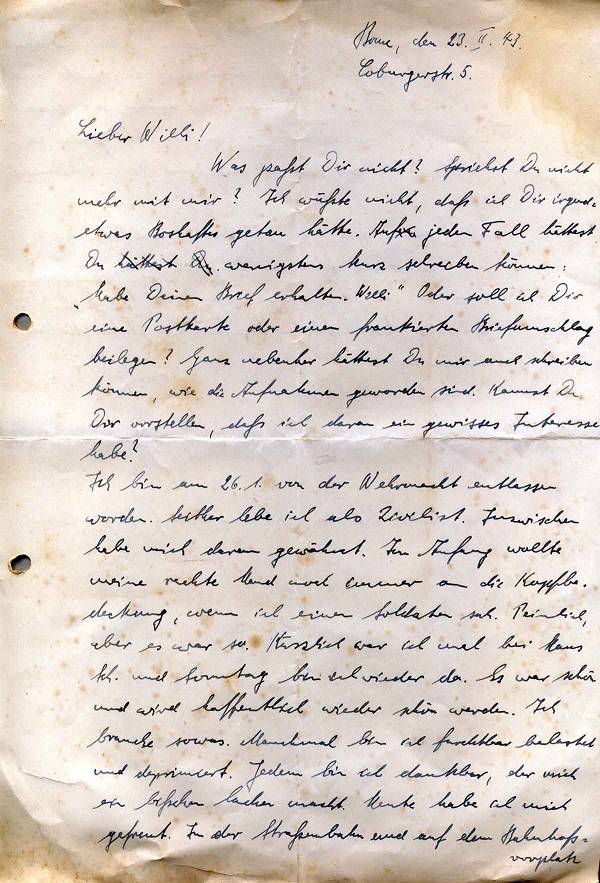 Bonn, den 23. II. 43.
Coburgerstr. 5.
Lieber Willi!
Was paßt Dir nicht? Sprichst Du nicht
mehr mit mir? Ich wüßte nicht, daß ich Dir irgend=
etwas Boshaftes getan hätte. Auf jeden Fall hättest
Du wenigstens kurz schreiben können:
„habe Deinen Brief erhalten. Willi“ Oder soll ich Dir
eine Postkarte oder einen frankierten Briefumschlag
beilegen? Ganz nebenher hättest Du mir auch schreiben
können, wie die Aufnahmen geworden sind. Kannst Du
Dir vorstellen, daß ich daran ein gewisses Interesse
habe?
Ich bin am 26.1. von der Wehrmacht entlassen
worden. Seither lebe ich als Zivilist. Inzwischen
habe mich daran gewöhnt. Im Anfang wollte
meine rechte Hand noch immer an die Kopfbe=
deckung, wenn ich einen Soldaten sah. Peinlich,
aber es war so. Kürzlich war ich mal bei Hans
Sch. und Sonntag bin ich wieder da. Es war schön
und wird hoffentlich wieder schön werden. Ich
brauche sowas. Manchmal bin ich furchtbar belastet
und deprimiert. Jedem bin ich dankbar, der mich
ein bißchen lachen macht. Heute habe ich mich
gefreut. In der Straßenbahn und auf dem Bahnhofs=
vorplatz